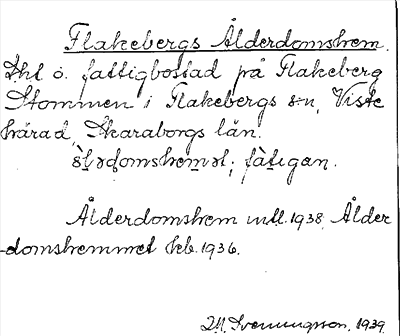 Flakebergs Ålderdomshem.
Ihl o. fattigbostad på Flakeberg
Stommen i Flakebergs s:n, Viste
härad, Skaraborgs län.
fàtigan.
Ålderdomshem mtl. 1938. Ålder
-domshemmet kb. 1936.
M. Svenungsson. 1939.